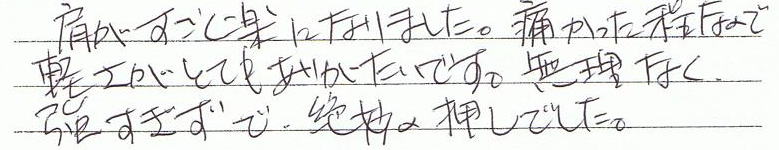 肩がすごく楽になりました。痛かった程なので
軽さがとてもありがたいです。無理なく、
強すぎずで、絶妙の押しでした。